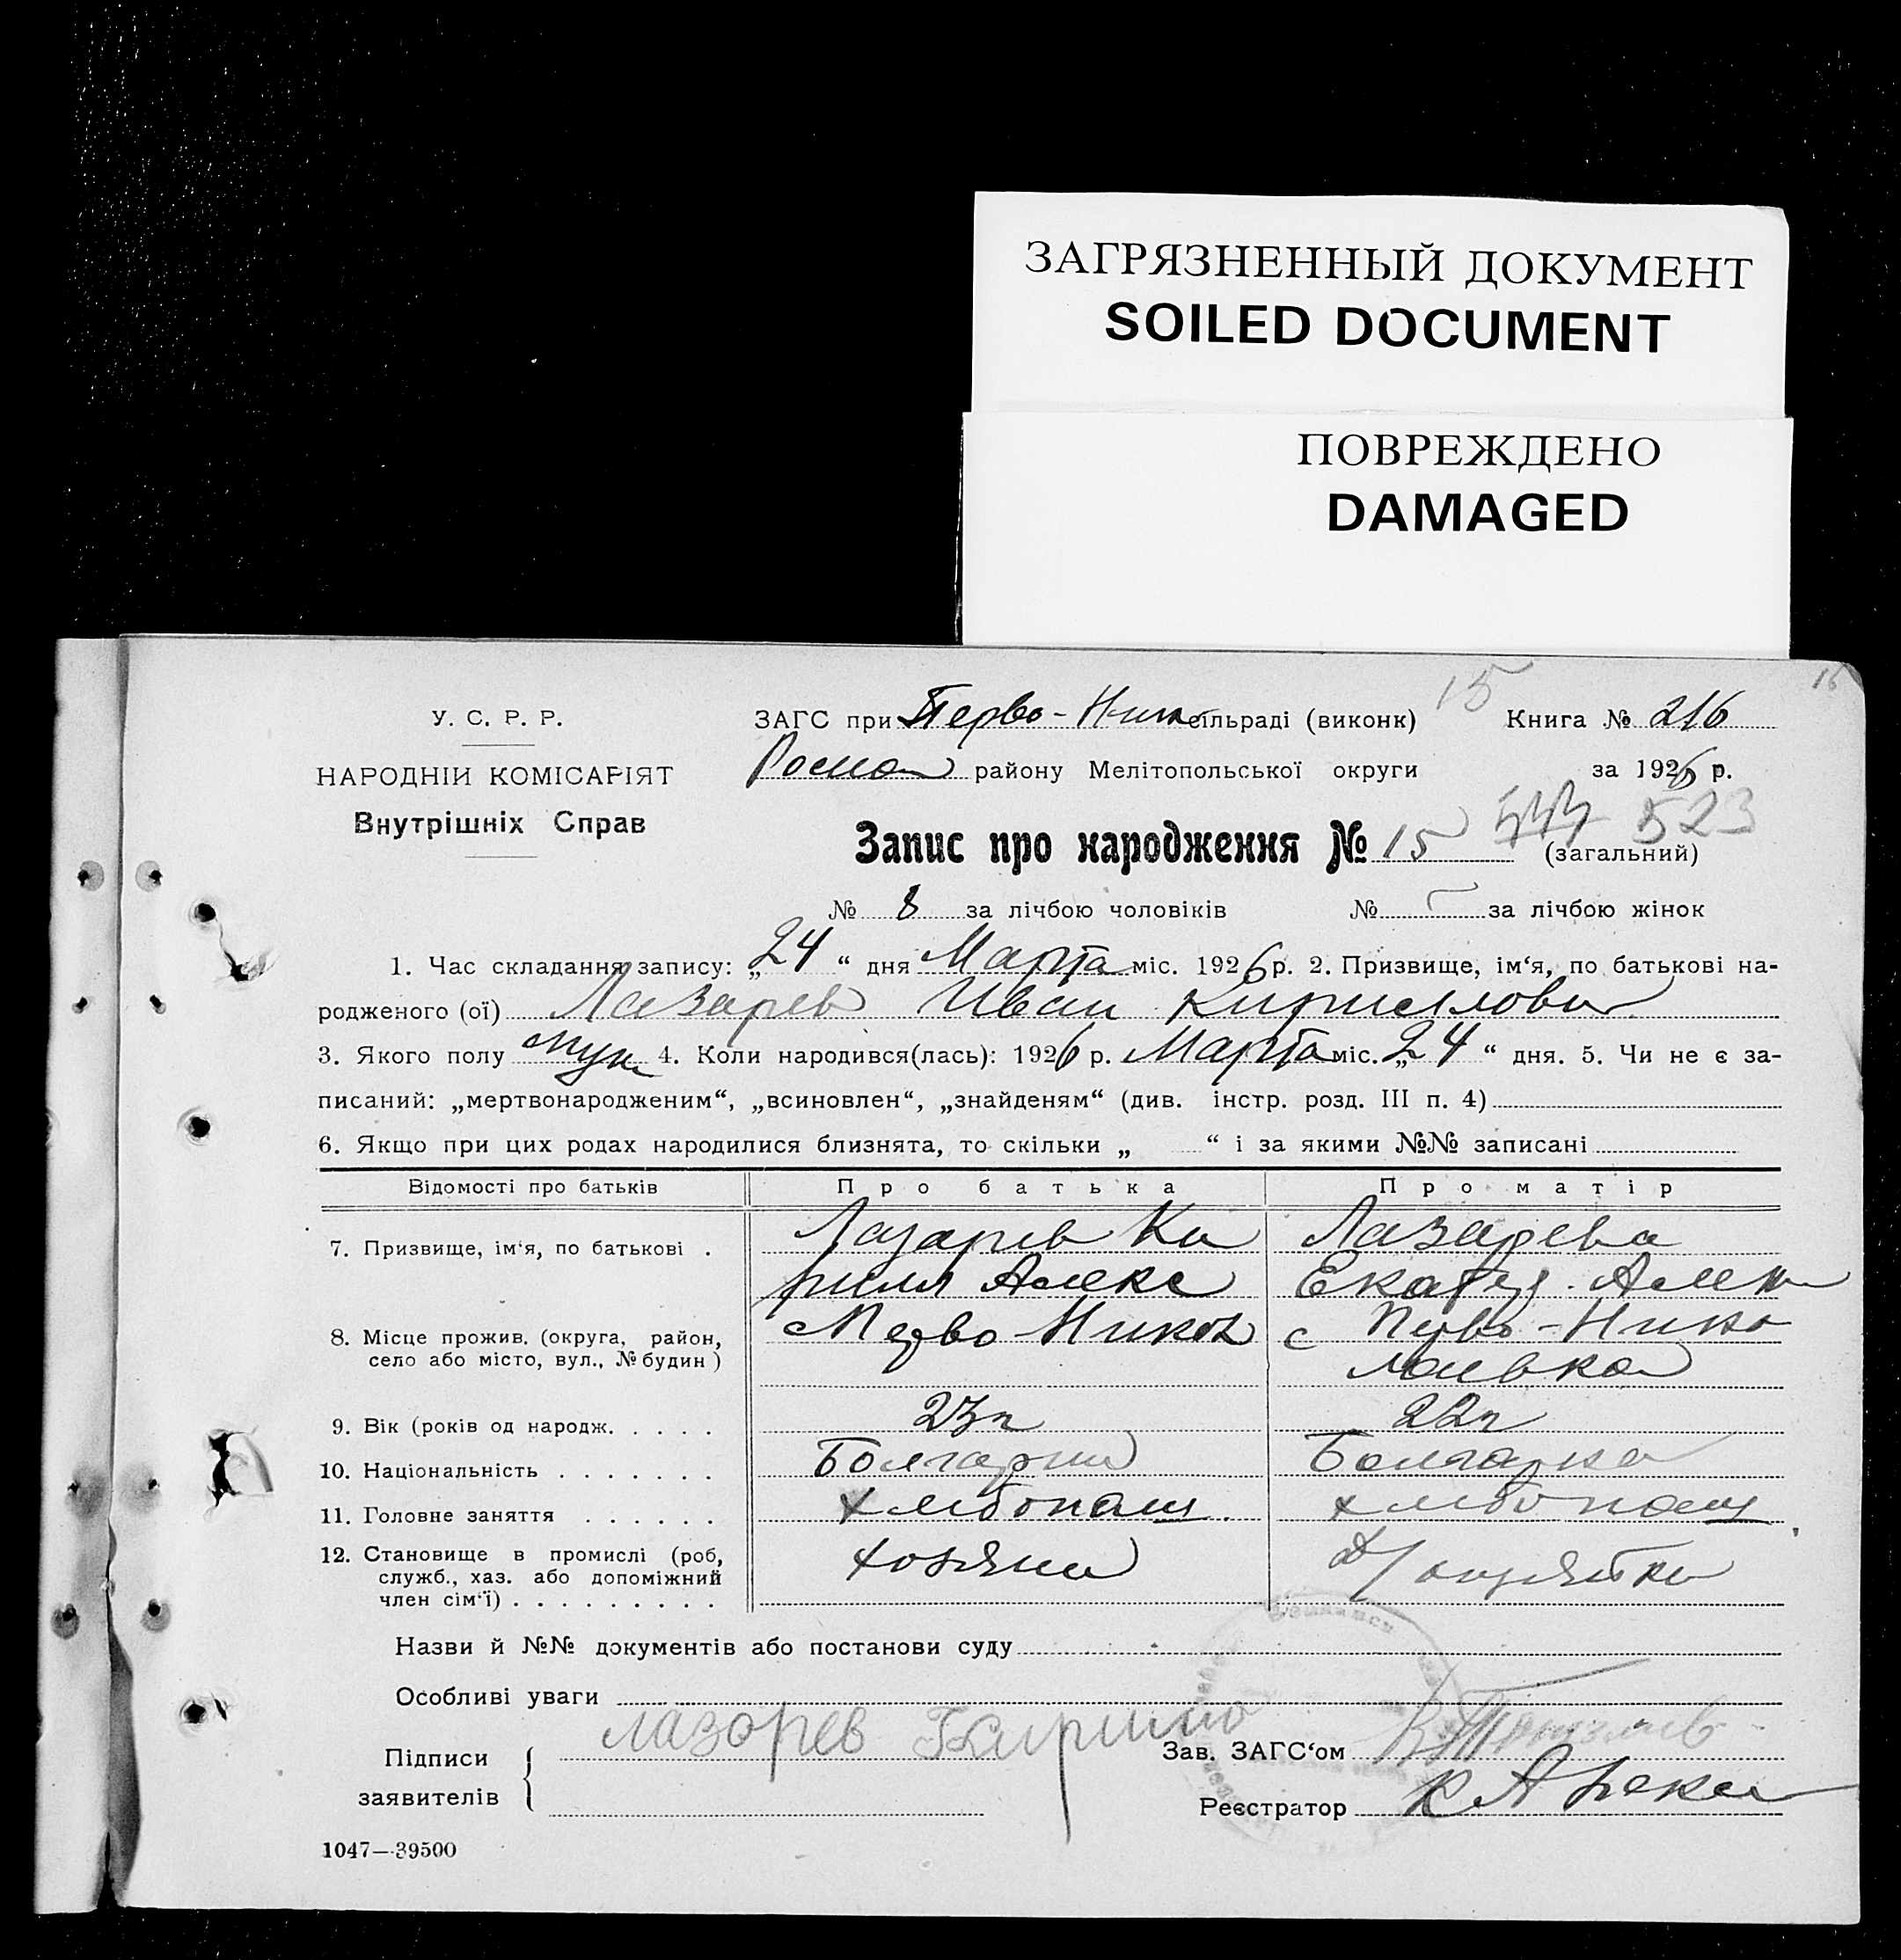 ЗАГРЯЗНЕННЫЙ ДОКУМЕНТ
SOILED DOCUMENT
ПОВРЕЖДЕНО
DAMAGED
15 16
У. С. Р. Р.
НАРОДНІЙ КОМІСАРІЯТ
Внутрішніх Справ
ЗАГС при Перво-Ник сільраді (виконк) Книга № 216
району Мелітопольської округи за 1926 р.
523
Запис про народження № 15 (загальний)
№ 8 за лічбою чоловіків № за лічбою жінок
1. Час складання запису: „24“ дня Марта міс. 1926 р. 2. Призвище, ім‘я, по батькові на-
родженого (ої) Лазарев Иван Кириллович
3. Якого полу муж 4. Коли народився(лась): 1926 р. Марта міс. „24“ дня. 5. Чи не є за-
писаний: „мертвонародженим“, „всиновлен“, „знайденям“ (див. інстр. розд. III п. 4)
6. Якщо при цих родах народилися близнята, то скільки „ “ і за якими №№ записані
Відомості про батьків Про батька Про матір
7. Призвище, ім‘я, по батькові . Лазарев Ки Лазарева
рилл Алекс Екатер. Алек
8. Місце прожив. (округа, район, с Перво-Никол с Перво-Нико
село або місто, вул., № будин) лаевка
9. Вік (років од народж. . . . . 23 г 22 г
10. Національність . . . . . . . Болгарин Болгарка
11. Головне заняття . . . . . . хлебопаш. хлебопаш.
12. Становище в промислі (роб, хозяин Д/хозяйки
служб., хаз. або допоміжний
член сім‘ї) . . . . . . . . .
Назви й №№ документів або постанови суду
Особливі уваги
Підписи
заявителів
лазорев Кирило
Зав. ЗАГС‘ом
Реєстратор
1047—39500